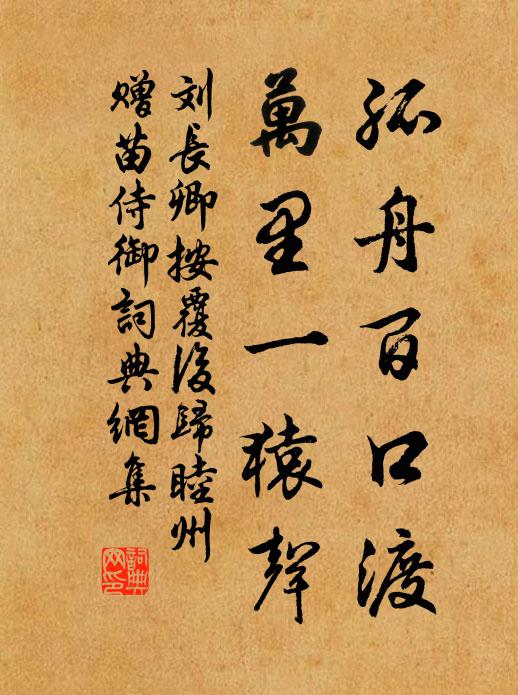 孤舟百口渡
萬里一猿聲
刘長卿按覆後歸睦州
贈苗侍御詞典網集
詞典
网印